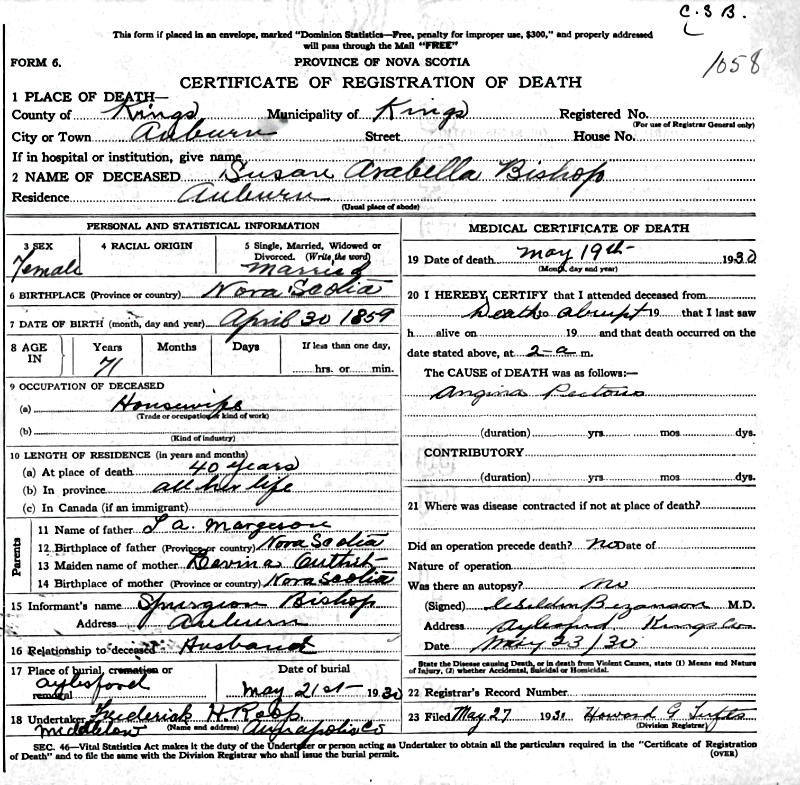 C. S B.
This form if placed in an envelope, marked "Dominion Statistics—Free, penalty for improper use, $300," and properly addressed
will pass through the Mail "FREE"
1058
FORM 6.
PROVINCE OF NOVA SCOTIA
CERTIFICATE OF REGISTRATION OF DEATH
1 PLACE OF DEATH—
County of Kings Municipality of Kings Registered No.
(For use of Registrar General only)
City or Town Auburn Street House No.
If in hospital or institution, give name
2 NAME OF DECEASED Susan Arabella Bishop
Residence Auburn
(Usual place of abode)
PERSONAL AND STATISTICAL INFORMATION
3 SEX Female
4 RACIAL ORIGIN
5 Single, Married, Widowed or
Divorced. (Write the word)
Married
6 BIRTHPLACE (Province or country) Nova Scotia
7 DATE OF BIRTH (month, day and year) April 30 1859
8 AGE IN
Years 71
Months
Days
If less than one day,
hrs. or min.
9 OCCUPATION OF DECEASED
(a) Housewife
(Trade or occupation or kind of work)
(b)
(Kind of industry)
10 LENGTH OF RESIDENCE (in years and months)
(a) At place of death 40 years
(b) In province all her life
(c) In Canada (if an immigrant)
Parents
11 Name of father Margeson
12 Birthplace of father (Province or country) Nova Scotia
13 Maiden name of mother
14 Birthplace of mother (Province or country) Nova Scotia
15 Informant's name Spurgeon Bishop
Address Auburn
16 Relationship to deceased Husband
17 Place of burial, cremation or
removal Aylesford
Date of burial
May 21st 1930
18 Undertaker Frederick H. Roop
Middleton (Name and address) Annapolis Co
MEDICAL CERTIFICATE OF DEATH
19 Date of death May 19th 1930
(Month, day and year)
20 I HEREBY CERTIFY that I attended deceased from
Death so abrupt 19 that I last saw
h alive on 19 and that death occurred on the
date stated above, at 2-a m.
The CAUSE of DEATH was as follows:—
Angina Pectoris
(duration) yrs mos dys.
CONTRIBUTORY
(duration) yrs mos dys.
21 Where was disease contracted if not at place of death?
Did an operation precede death? no Date of
Nature of operation
Was there an autopsy? no
(Signed) Bezanson M.D.
Address Aylesford Kings Co
Date May 23/30
State the Disease causing Death, or in death from Violent Causes, state (1) Means and Nature
of Injury, (2) whether Accidental, Suicidal or Homicidal.
22 Registrar's Record Number
23 Filed May 27 1930 Howard G Tufts
(Division Registrar)
SEC. 46—Vital Statistics Act makes it the duty of the Undertaker or person acting as Undertaker to obtain all the particulars required in the "Certificate of Registration
of Death" and to file the same with the Division Registrar who shall issue the burial permit.
(OVER)